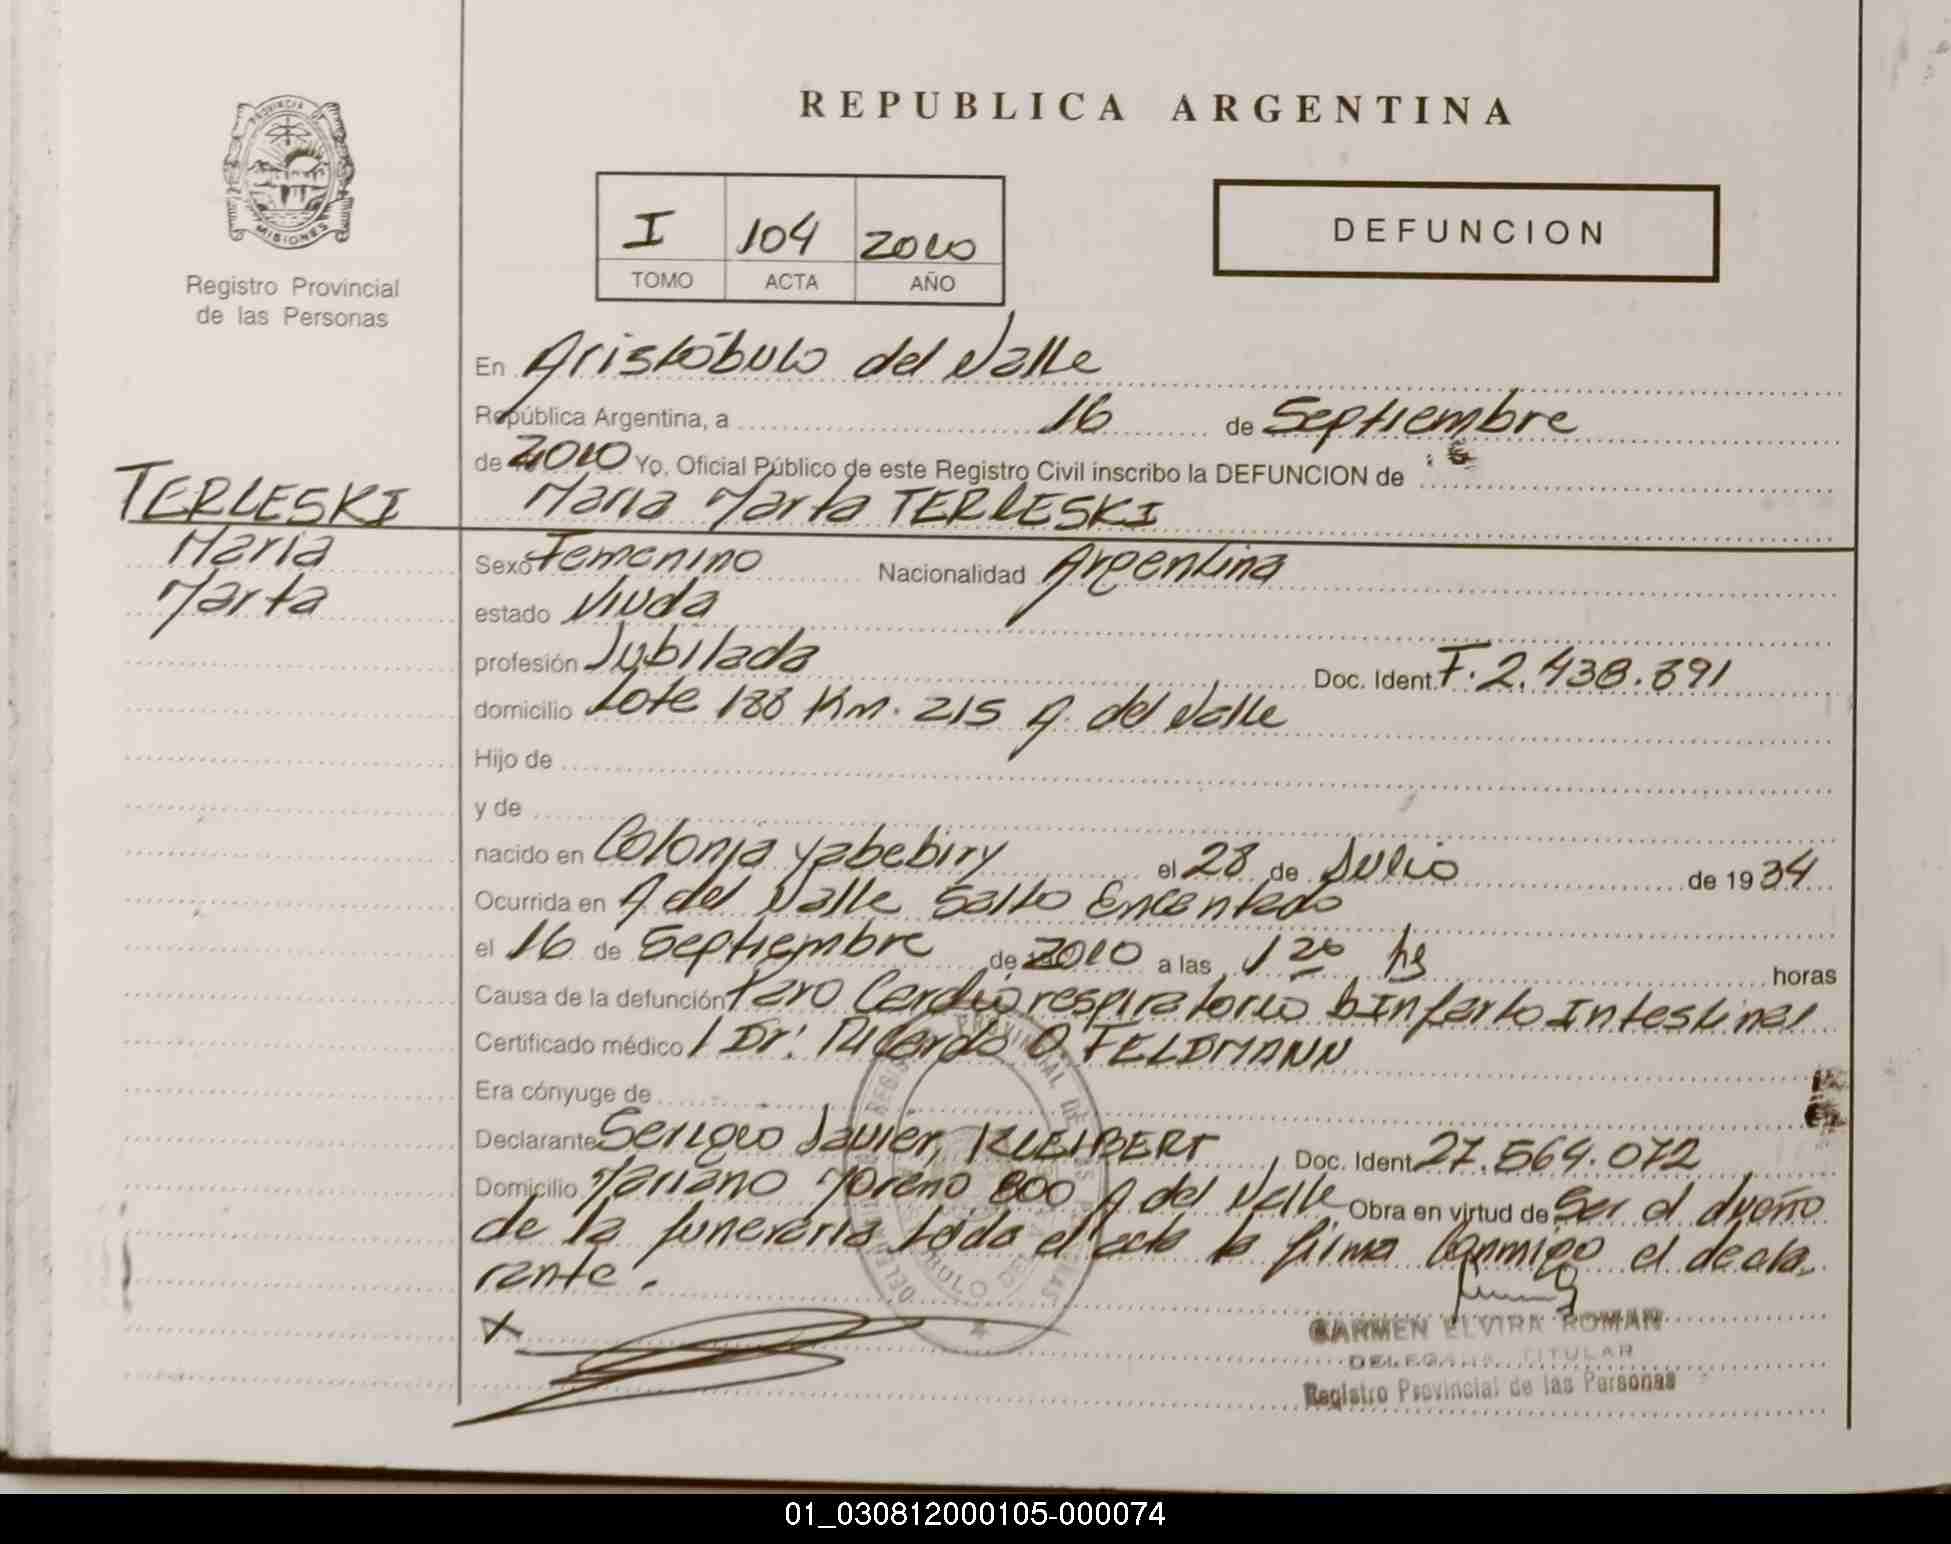 REPUBLICA ARGENTINA
PROVINCIA DE
MISIONES
Registro Provincial
de las Personas
I 104 2010
TOMO ACTA AÑO
DEFUNCION
En Aristóbulo del Valle
República Argentina, a 16 de Septiembre
de 2010 Yo, Oficial Público de este Registro Civil inscribo la DEFUNCION de
TERLESKI
Maria Marta TERLESKI
Maria
Marta
Sexo Femenino Nacionalidad Argentina
estado Viuda
profesión Jubilada Doc. Ident. F. 2.438.891
domicilio Lote 188 Km. 215 A. del Valle
Hijo de
y de
nacido en Colonia Yabebiry el 28 de Julio de 1934
Ocurrida en A del Valle Salto Encantado
el 16 de Septiembre de 2010 a las 1 20 hs horas
Causa de la defunción Paro Cardio respiratorio Infarto Intestinal
Certificado médico Dr. Ricardo O. FELDMANN
Era cónyuge de
Declarante Sergio Javier, KLEIBERT Doc. Ident. 27.564.072
Domicilio Mariano Moreno 800 A del Valle Obra en virtud de Ser el dueño
de la funeraria leida el acta la firma Conmigo el decla
rante.
X
CARMEN ELVIRA ROMAN
DELEGADA TITULAR
Registro Provincial de las Personas
01_030812000105-000074